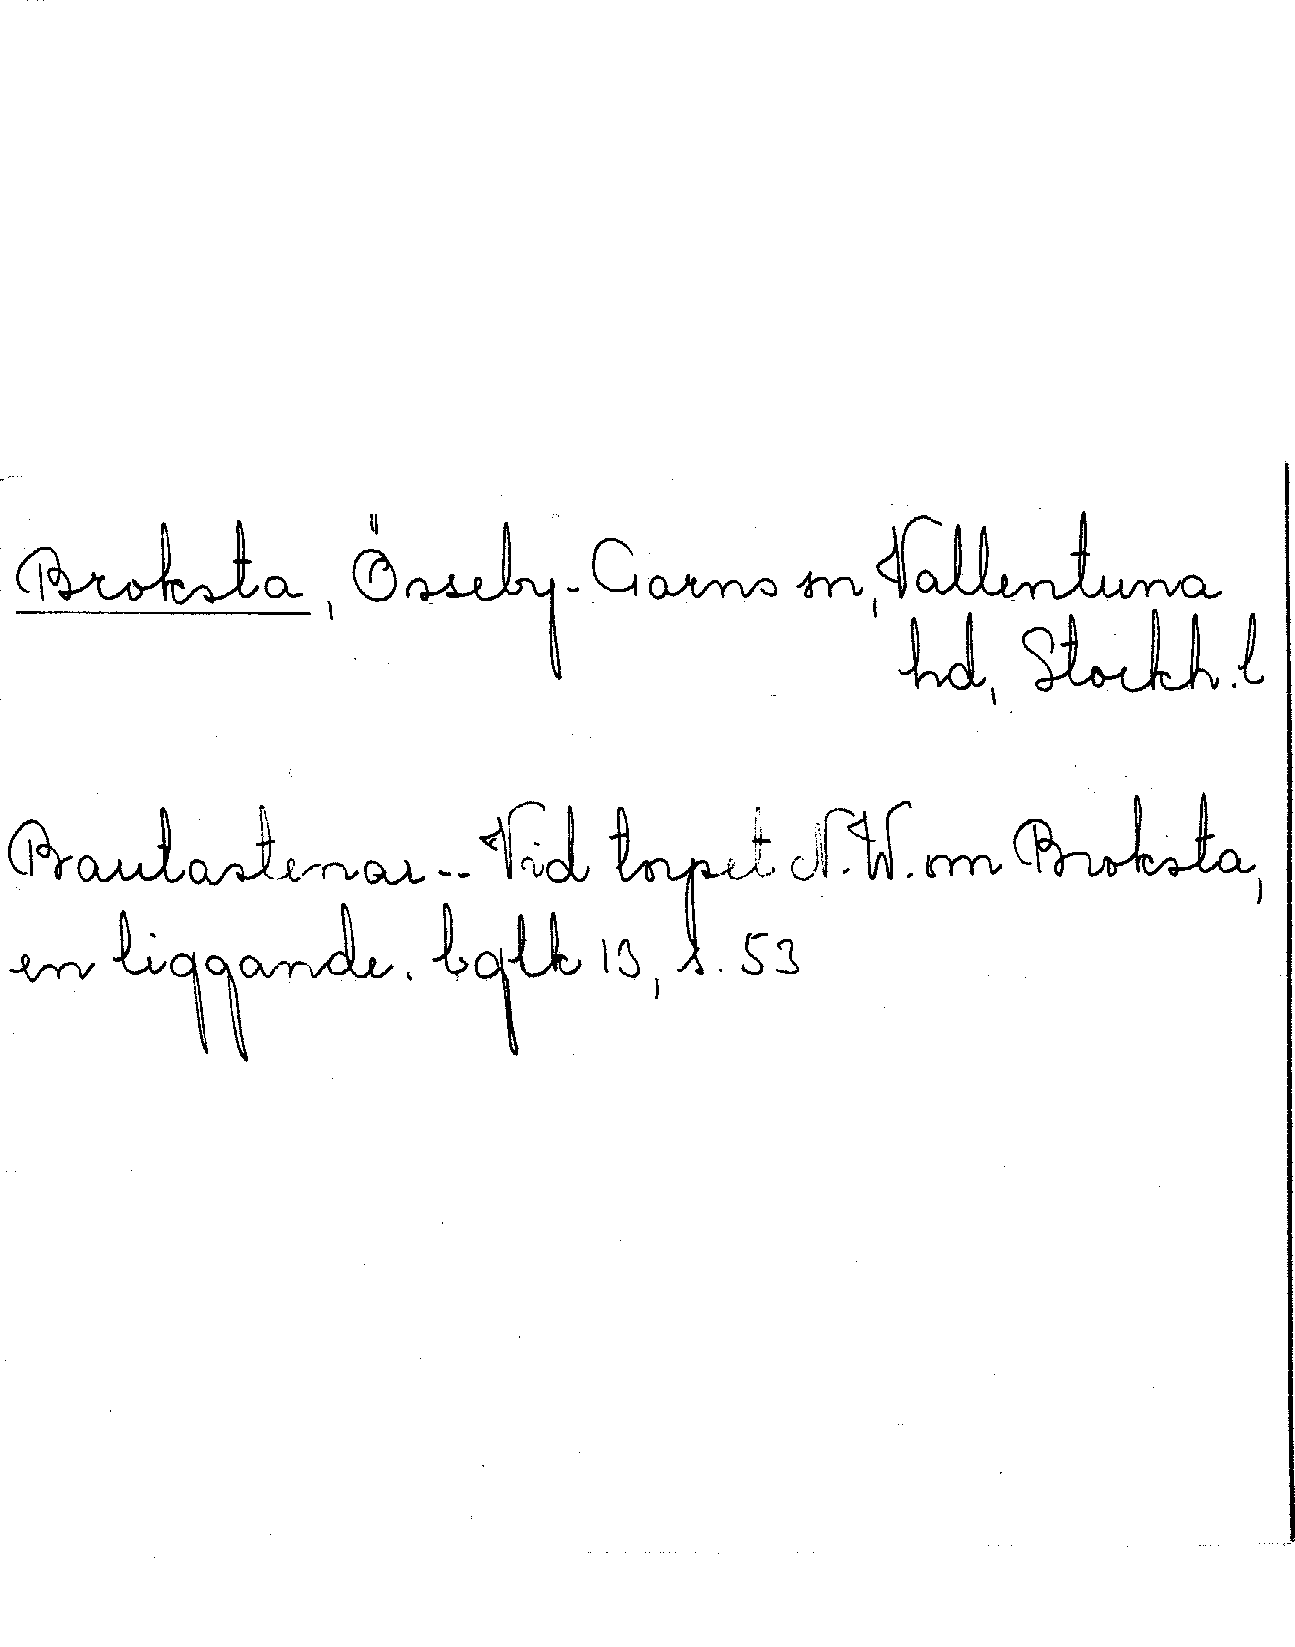 Broksta, Össeby-Garns sn, Vallentuna
hd, Stockh. l
Bautastenar -- Vid torpet N.W. om Broksta,
en liggande. bglk 13, s. 53